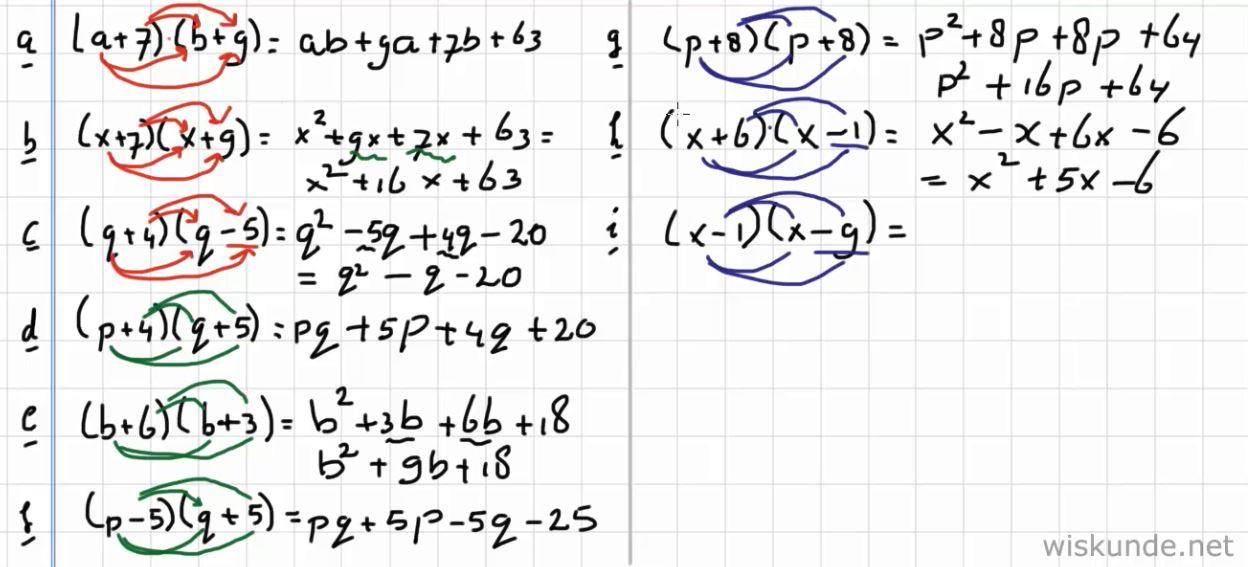 a (a+7)·(b+9) = ab+9a+7b+63
b (x+7)(x+9) = x²+9x+7x+63 =
x²+16x+63
c (q+4)(q-5) = q²-5q+4q-20
= q²-q-20
d (p+4)(q+5) = pq+5p+4q+20
e (b+6)(b+3) = b²+3b+6b+18
b²+9b+18
f (p-5)(q+5) = pq+5p-5q-25
g (p+8)(p+8) = p²+8p+8p+64
p²+16p+64
h (x+6)·(x-1) = x²-x+6x-6
= x²+5x-6
i (x-1)(x-9) =
wiskunde.net